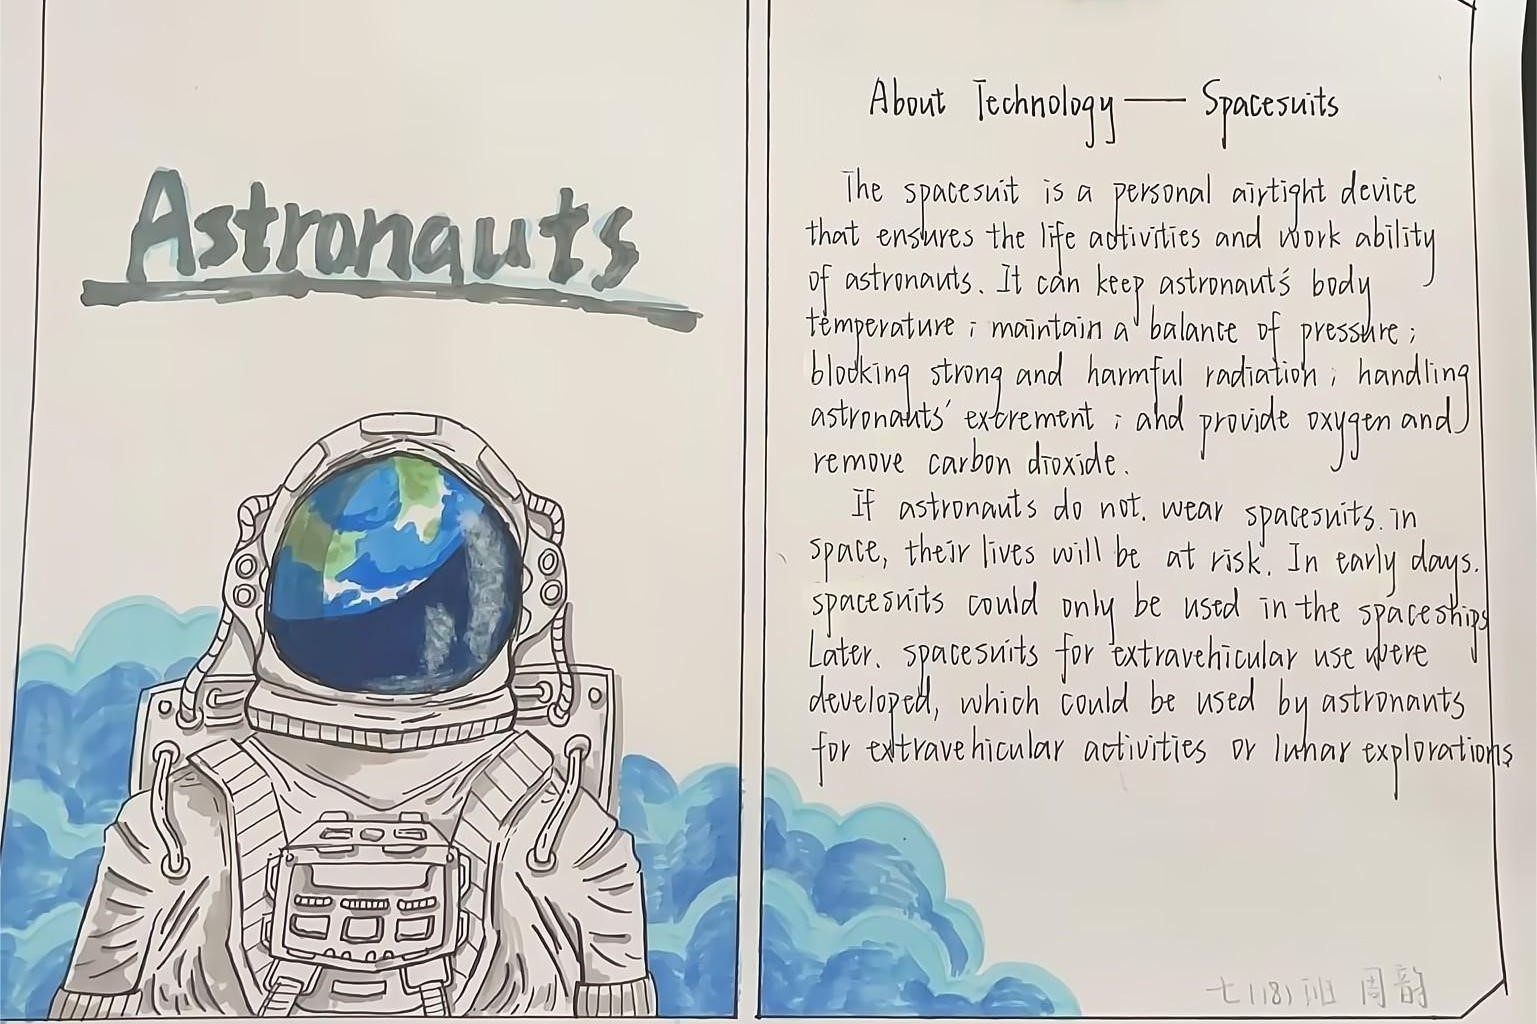 Astronauts
About Technology — Spacesuits
The spacesuit is a personal airtight device
that ensures the life activities and work ability
of astronauts. It can keep astronaut's body
temperature ; maintain a balance of pressure ;
blocking strong and harmful radiation ; handling
astronauts' excrement ; and provide oxygen and
remove carbon dioxide.
If astronauts do not. wear spacesuits. in
space, their lives will be at risk. In early days.
spacesuits could only be used in the spaceships
Later. spacesuits for extravehicular use were
developed, which could be used by astronants
for extravehicular activities or lunar explorations
七(18)班 周韵